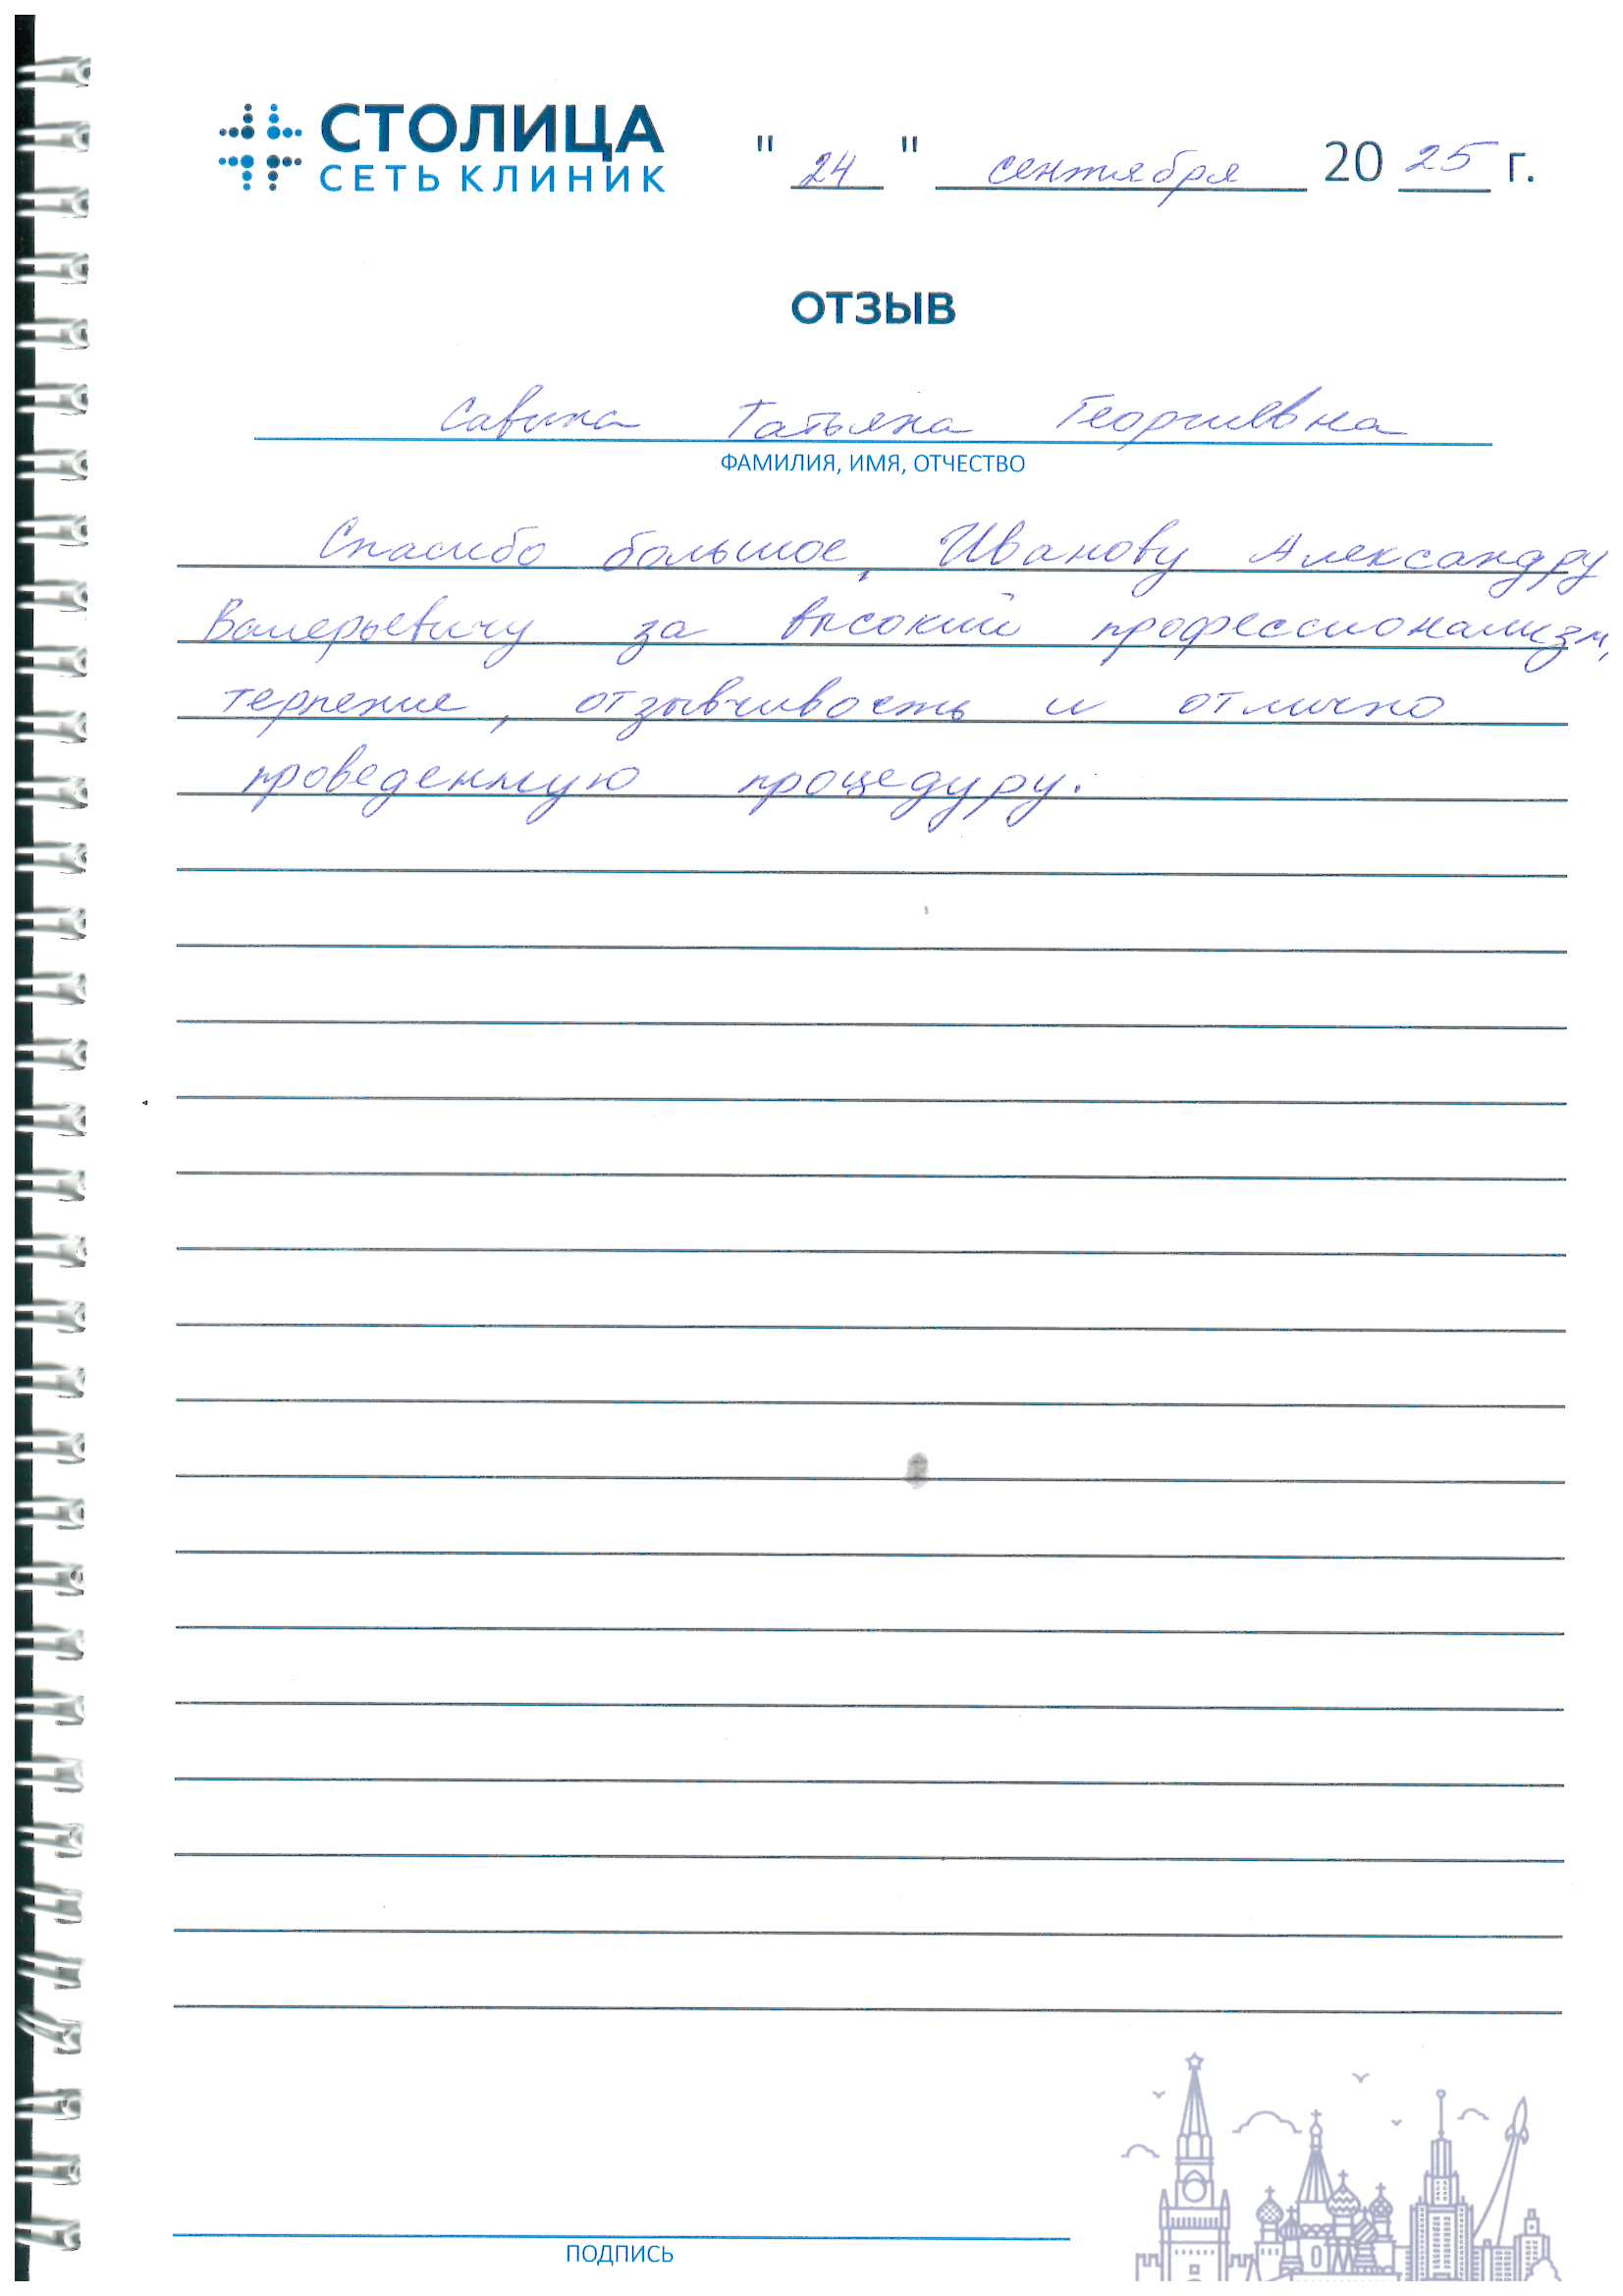 СТОЛИЦА
СЕТЬ КЛИНИК
"24" сентября 2025 г.
ОТЗЫВ
Савина Татьяна Георгиевна
ФАМИЛИЯ, ИМЯ, ОТЧЕСТВО
Спасибо большое, Иванову Александру
Валерьевичу за высокий профессионализм,
терпение, отзывчивость и отлично
проведенную процедуру.
ПОДПИСЬ